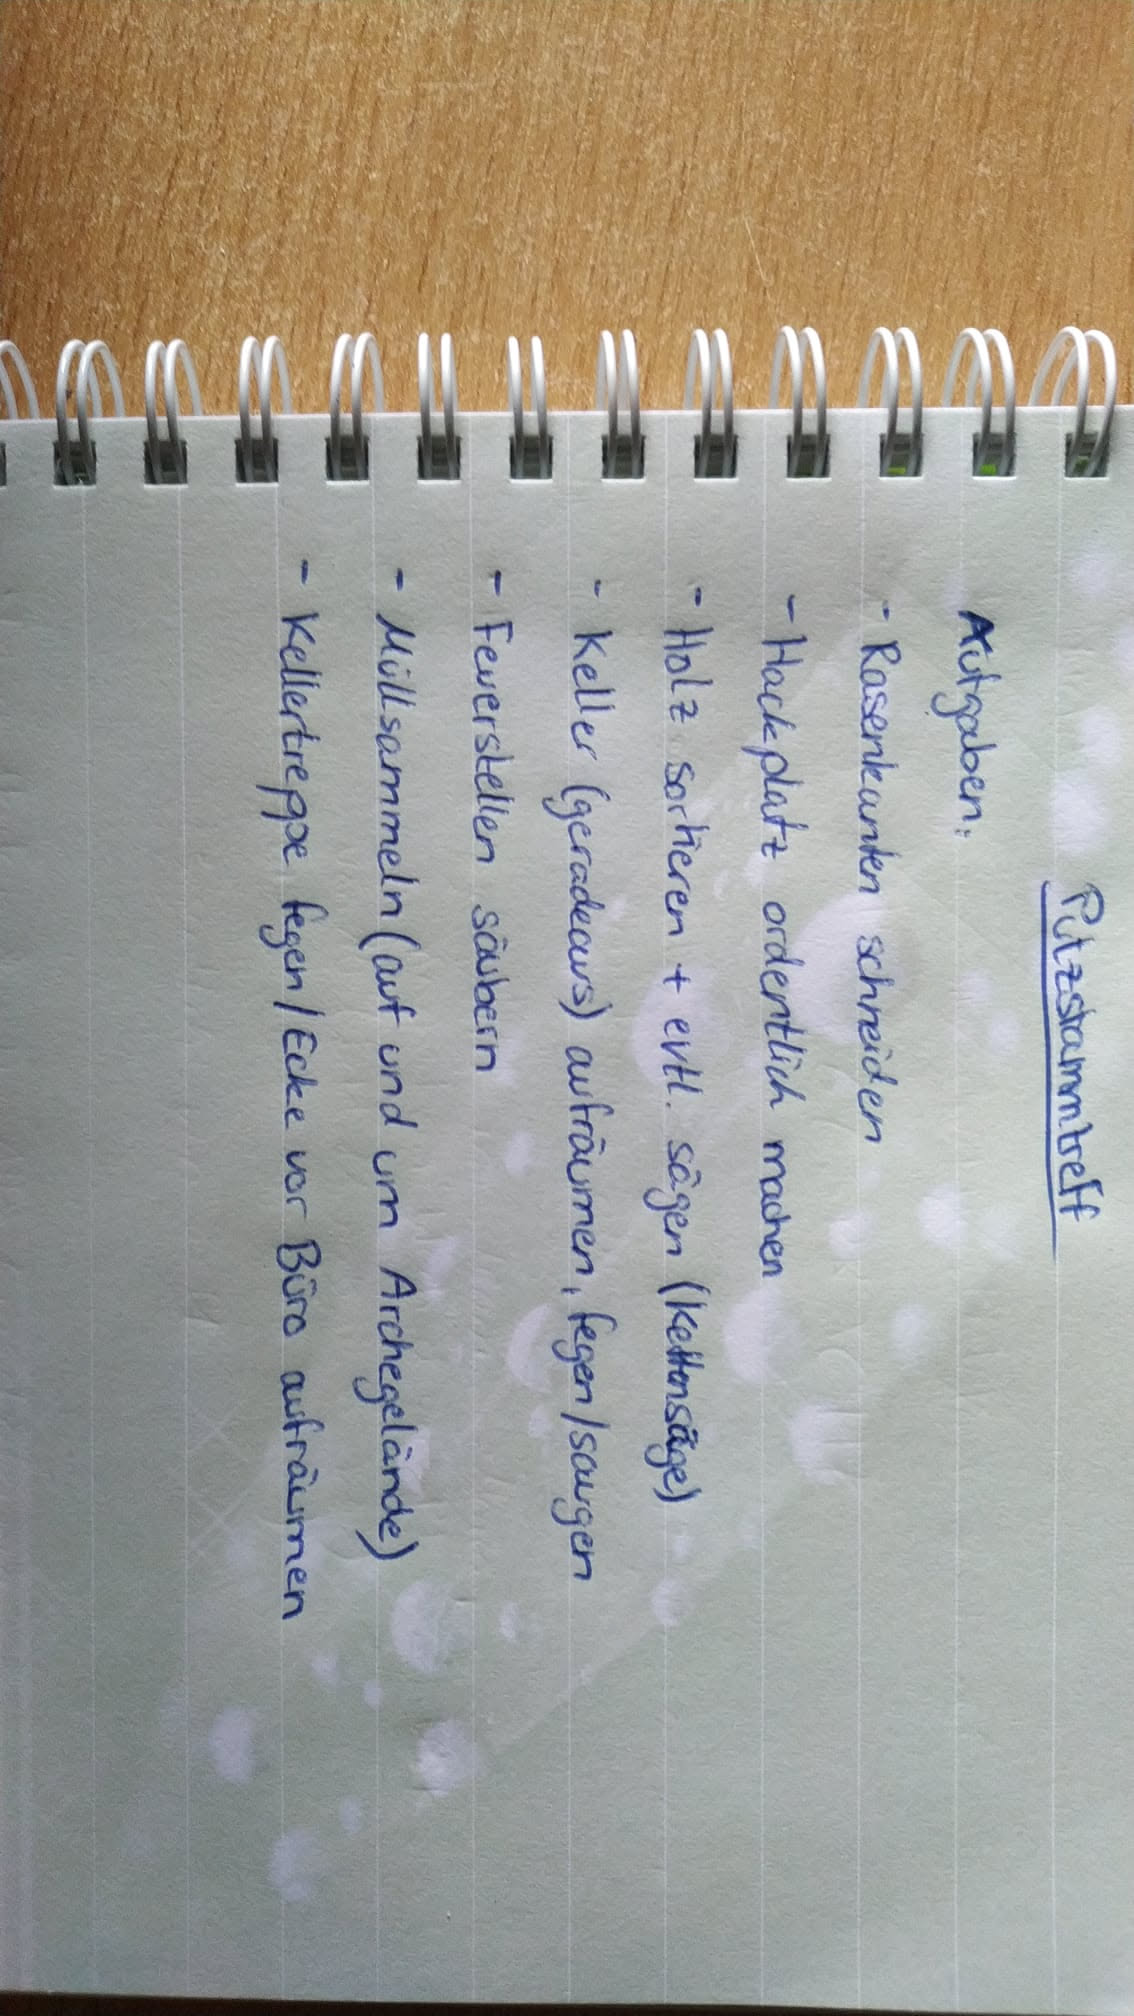 Putzstammtreff
Aufgaben:
- Rasenkanten schneiden
- Hackplatz ordentlich machen
- Holz sortieren + evtl. sägen (Kettensäge)
- Keller (geradeaus) aufräumen, fegen/saugen
- Feuerstellen säubern
- Müllsammeln (auf und um Archegelände)
- Kellertreppe fegen/Ecke vor Büro aufräumen